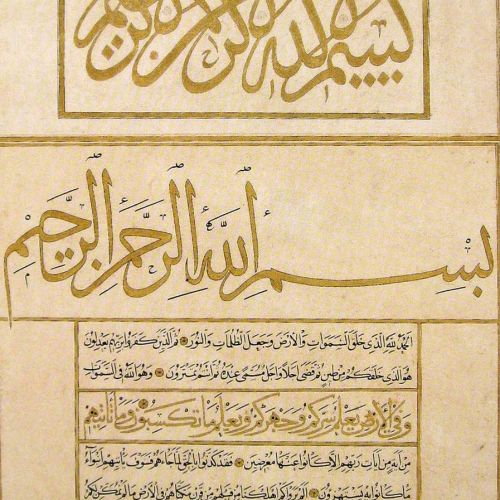 بسم الله الرحمن الرحيم
بِسْمِ اللَّهِ الرَّحْمَٰنِ الرَّحِيمِ
الحمد لله الذي خلق السموات والأرض وجعل الظلمات والنور ثم الذين كفروا بربهم يعدلون
هو الذي خلقكم من طين ثم قضى أجلا وأجل مسمى عنده ثم أنتم تمترون وهو الله في السموات
وفي الأرض يعلم سركم وجهركم ويعلم ما تكسبون وما تأتيهم
من آية من آيات ربهم إلا كانوا عنها معرضين فقد كذبوا بالحق لما جاءهم فسوف يأتيهم أنباء
ما كانوا به يستهزؤن ألم يروا كم أهلكنا من قبلهم من قرن مكناهم في الأرض ما لم نمكن لكم